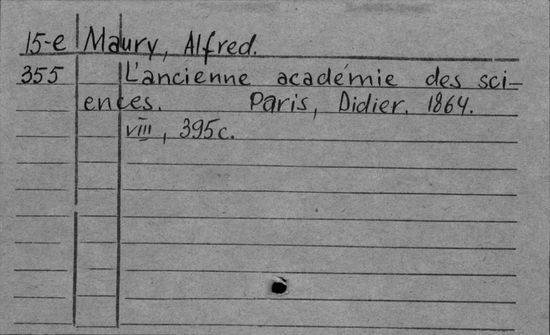 15-e Maury, Alfred.
355 L'ancienne académie des sci-
ences. Paris, Didier. 1864.
viii, 395c.